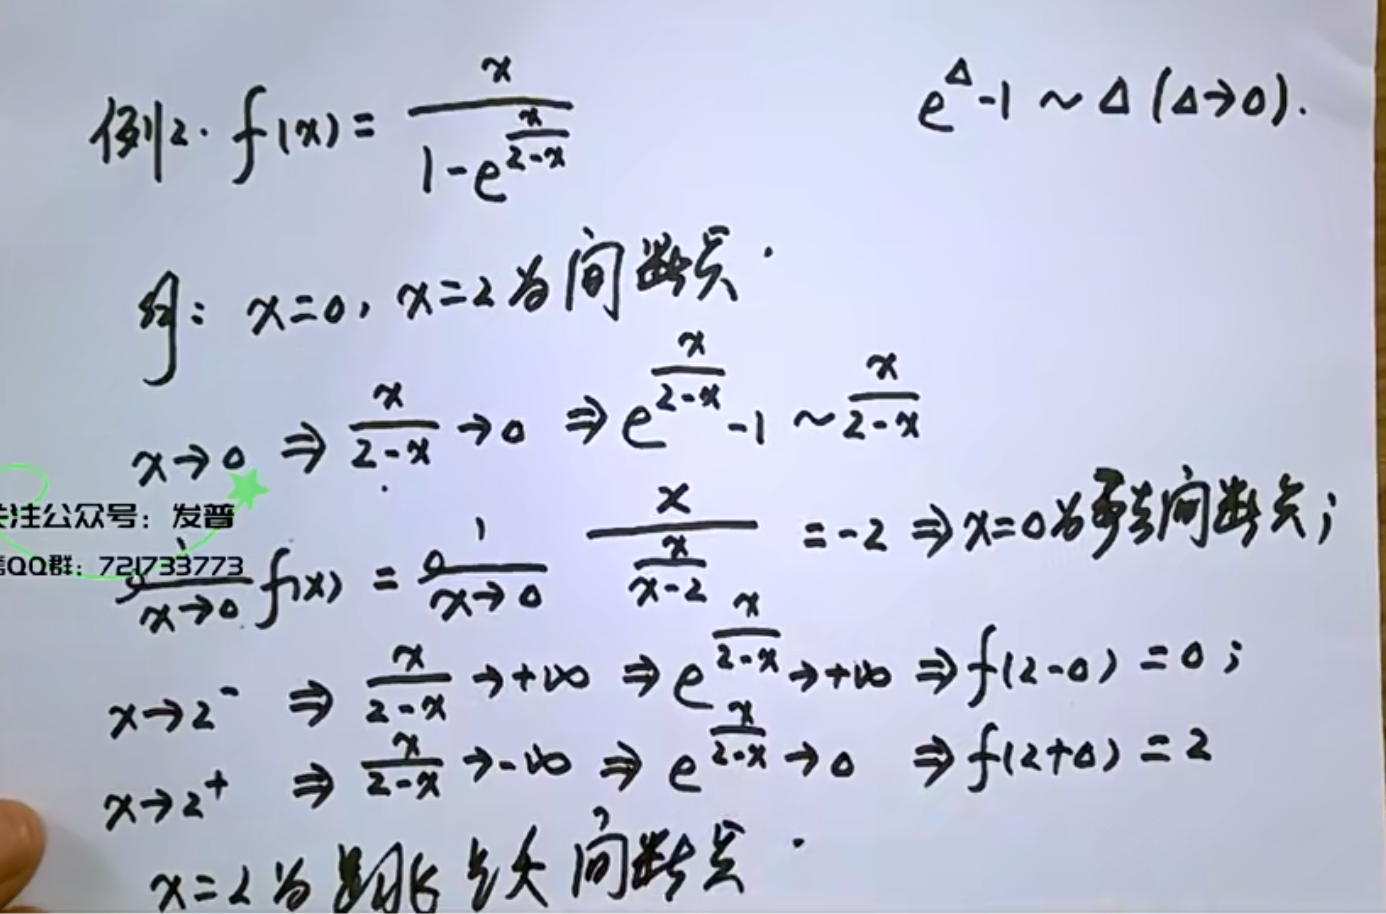 例2. f(x) = x/(1-e^(x/(2-x)))    e^Δ-1 ~ Δ (Δ→0).
解: x=0, x=2为间断点.
x→0 ⇒ x/(2-x) →0 ⇒ e^(x/(2-x)) -1 ~ x/(2-x)
关注公众号：发普
QQ群：721733773
lim x→0 f(x) = lim x→0 x/(x/(x-2)) = -2 ⇒ x=0为可去间断点;
x→2⁻ ⇒ x/(2-x) →+∞ ⇒ e^(x/(2-x)) →+∞ ⇒ f(2-0) = 0;
x→2⁺ ⇒ x/(2-x) →-∞ ⇒ e^(x/(2-x)) →0 ⇒ f(2+0) = 2
x=2为跳跃间断点.